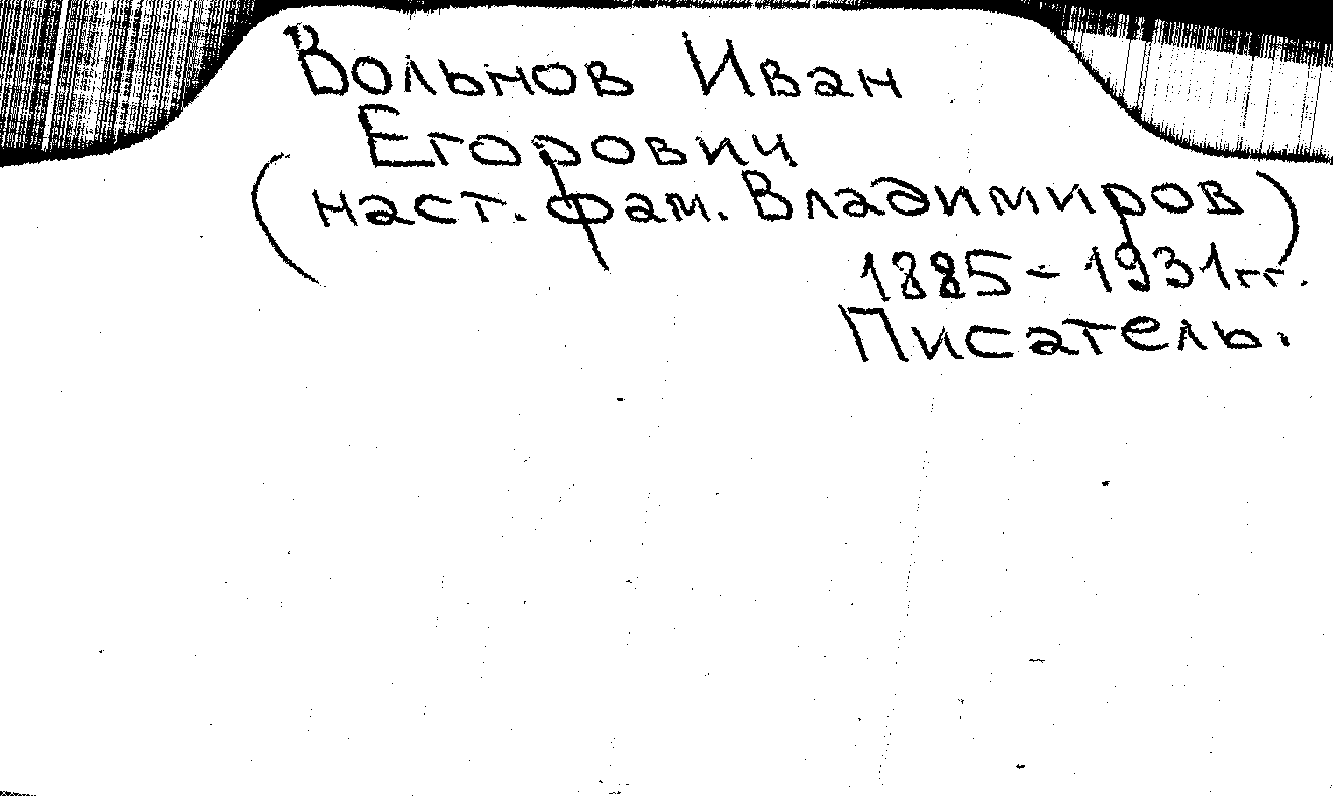 Вольнов Иван
Егорович
(наст. фам. Владимиров)
1885 – 1931гг.
Писатель.